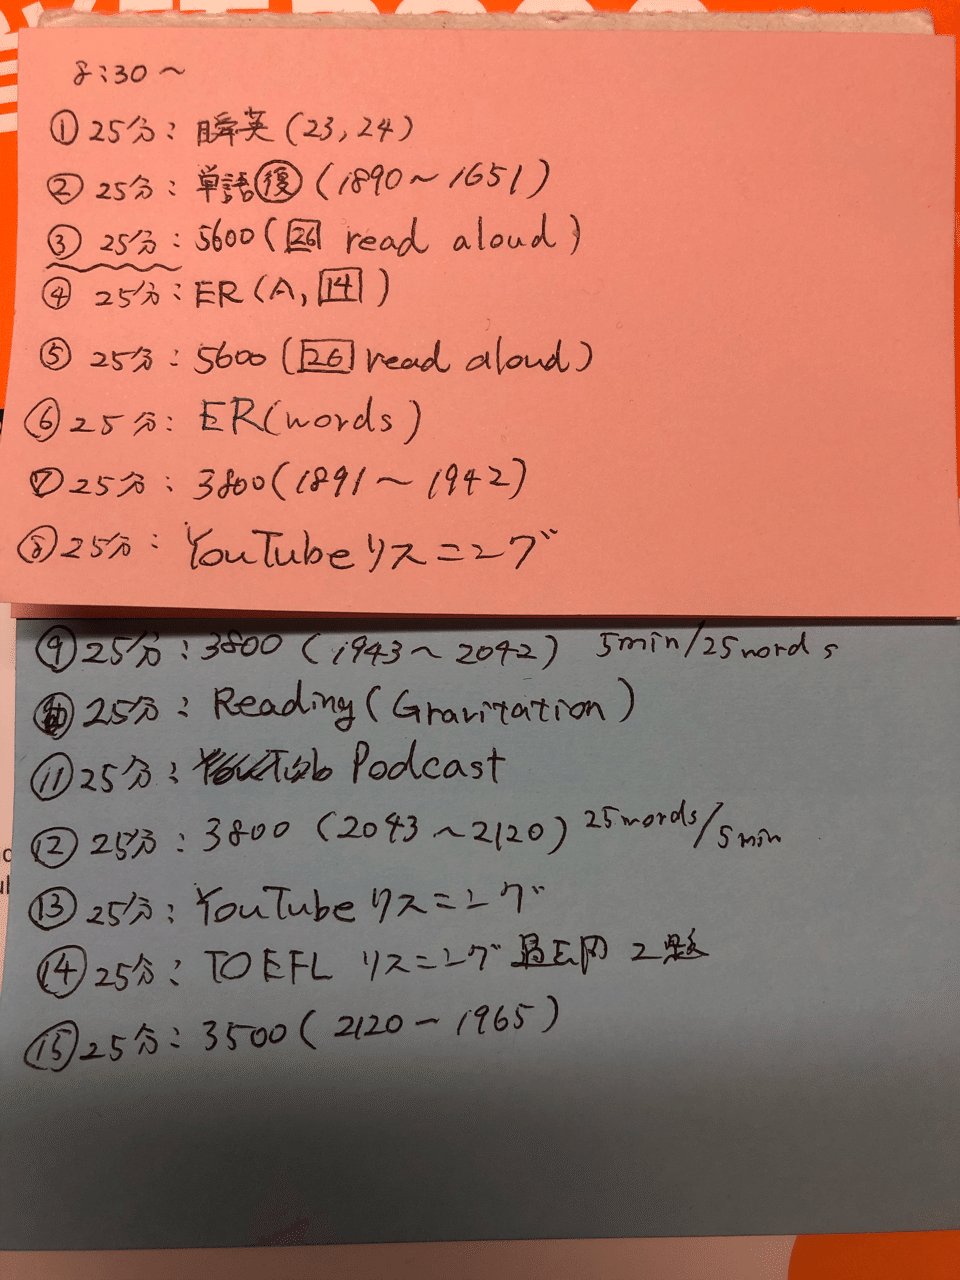 8:30〜
① 25分: 瞬英(23,24)
② 25分: 単語復(1890〜1651)
③ 25分: 5600(26 read aloud)
④ 25分: ER(A, 14)
⑤ 25分: 5600(26 read aloud)
⑥ 25分: ER(words)
⑦ 25分: 3800(1891〜1942)
⑧ 25分: YouTubeリスニング
⑨ 25分: 3800(1943〜2042) 5min/25words
⑩ 25分: Reading(Gravitation)
⑪ 25分: Podcast
⑫ 25分: 3800(2043〜2120) 25words/5min
⑬ 25分: YouTubeリスニング
⑭ 25分: TOEFLリスニング 2題
⑮ 25分: 3500(2120-1965)